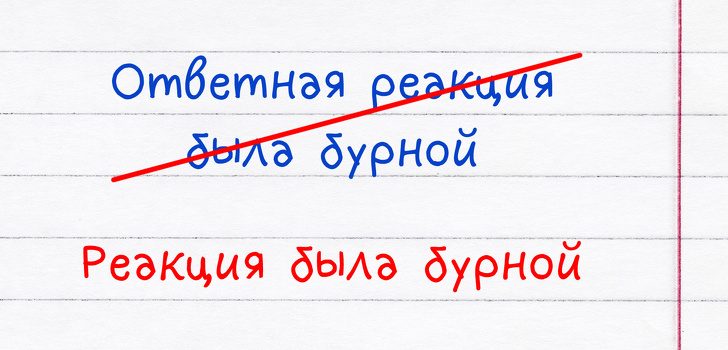 Ответная реакция
была бурной
Реакция была бурной